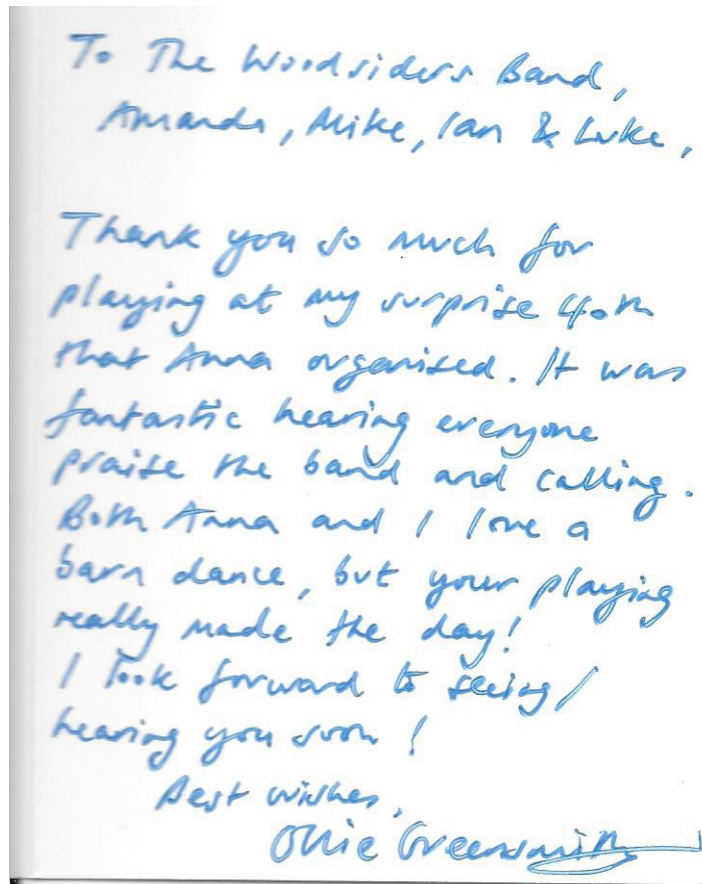 To The Woodsiders Band,
Amanda, Mike, Ian & Luke,
Thank you so much for
playing at my surprise 40th
that Anna organised. It was
fantastic hearing everyone
praise the band and calling.
Both Anna and I love a
barn dance, but your playing
really made the day!
I look forward to seeing/
hearing you soon!
Best wishes,
Ollie Greensmith